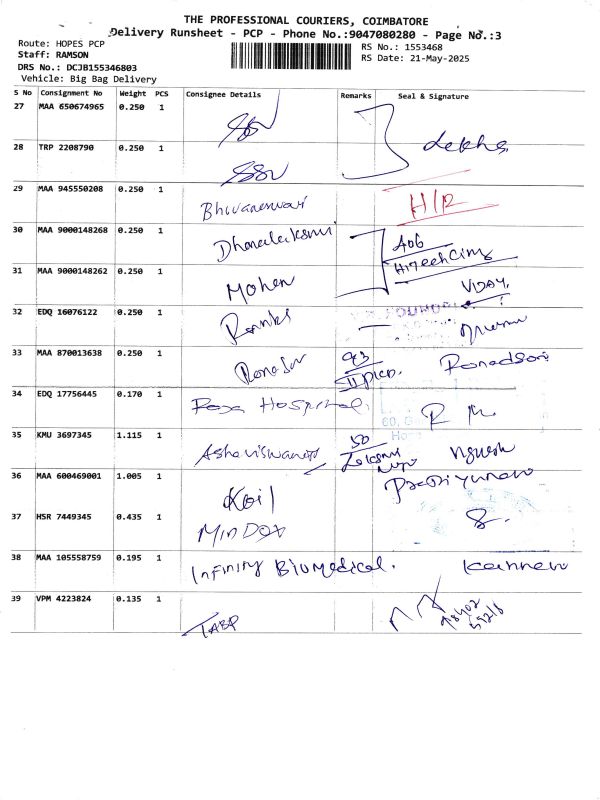 THE PROFESSIONAL COURIERS, COIMBATORE
Delivery Runsheet - PCP - Phone No.:9047080280 - Page No.:3
Route: HOPES PCP
Staff: RAMSON
DRS No.: DCJB155346803
Vehicle: Big Bag Delivery
RS No.: 1553468
RS Date: 21-May-2025
S No Consignment No Weight PCS Consignee Details Remarks Seal & Signature
27 MAA 650674965 0.250 1
Lekha
28 TRP 2208790 0.250 1
29 MAA 945550208 0.250 1 Bhuvaneswari H/R
30 MAA 9000148268 0.250 1 Dhanalakshmi
31 MAA 9000148262 0.250 1 Mohan
VIJAY.
32 EDQ 16076122 0.250 1
33 MAA 870013638 0.250 1
34 EDQ 17756445 0.170 1 Hospital
35 KMU 3697345 1.115 1
36 MAA 600469001 1.005 1 Koil
37 HSR 7449345 0.435 1 MinDox
38 MAA 105558759 0.195 1 Infinity Biomedical. Kannan
39 VPM 4223824 0.135 1